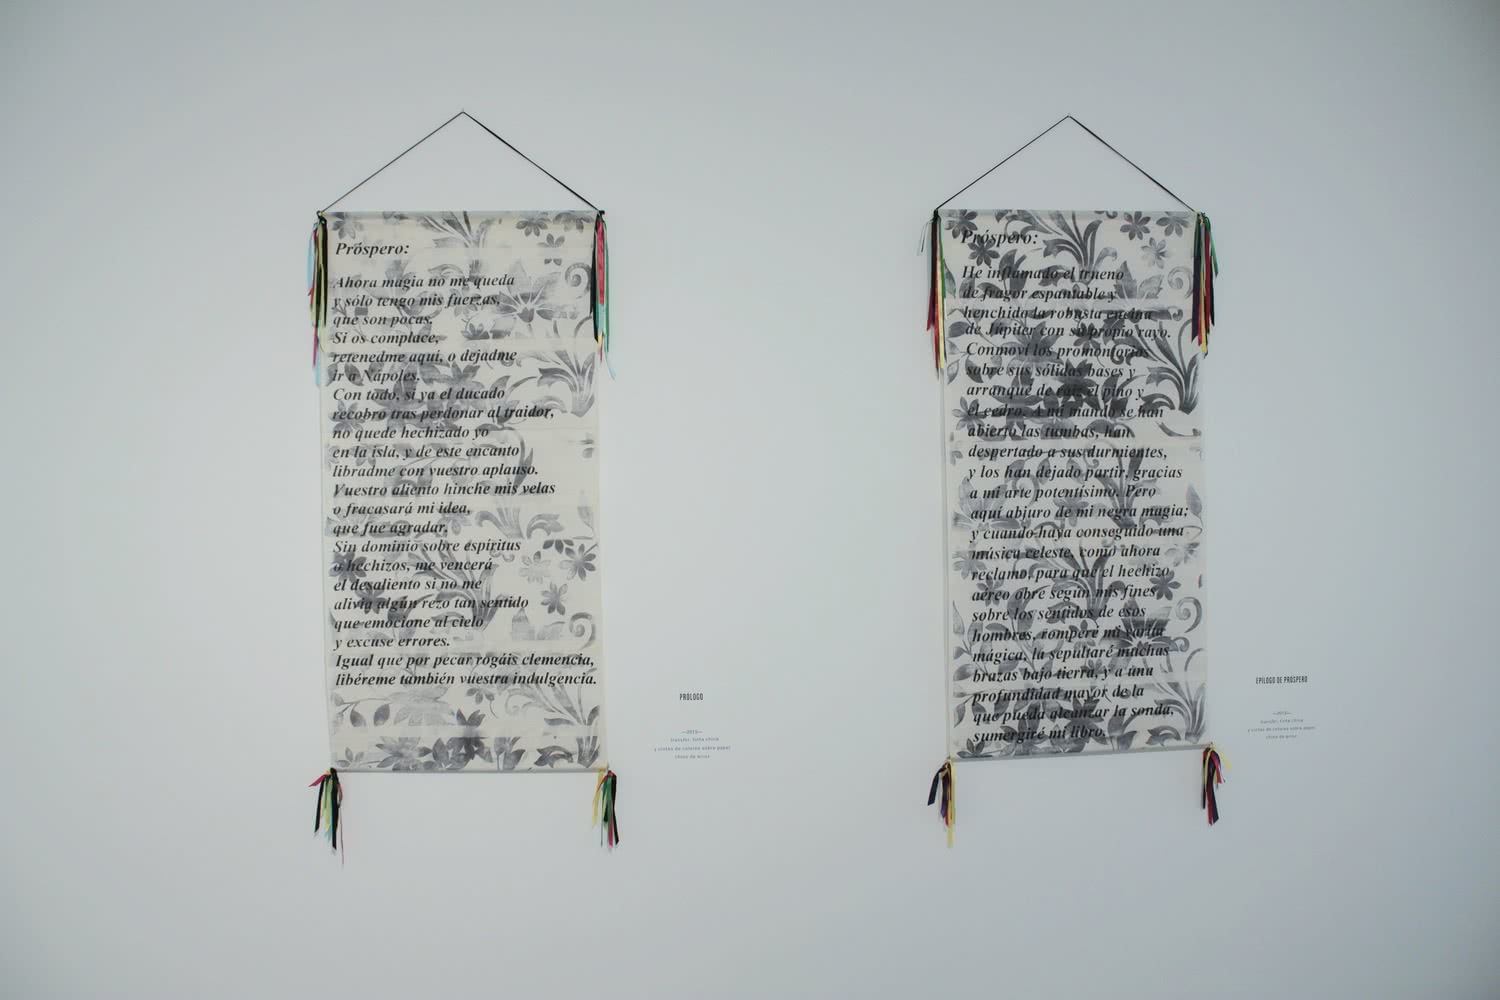 Próspero:
Ahora magia no me queda
y sólo tengo mis fuerzas,
que son pocas.
Si os complace,
retenedme aquí, o dejadme
ir a Nápoles.
Con todo, si ya el ducado
recobro tras perdonar al traidor,
no quede hechizado yo
en la isla, y de este encanto
libradme con vuestro aplauso.
Vuestro aliento hinche mis velas
o fracasará mi idea,
que fue agradar.
Sin dominio sobre espíritus
o hechizos, me vencerá
el desaliento si no me
alivia algún rezo tan sentido
que emocione al cielo
y excuse errores.
Igual que por pecar rogáis clemencia,
libéreme también vuestra indulgencia.
PRÓLOGO
—2013—
transfer, tinta china
y cintas de colores sobre papel
chino de arroz
Próspero:
He inflamado el trueno
de fragor espantable y
henchido la robusta encina
de Júpiter con su propio rayo.
Conmoví los promontorios
sobre sus sólidas bases y
arranqué de raíz el pino y
el cedro. A mi mando se han
abierto las tumbas, han
despertado a sus durmientes,
y los han dejado partir, gracias
a mi arte potentísimo. Pero
aquí abjuro de mi negra magia;
y cuando haya conseguido una
música celeste, como ahora
reclamo, para que el hechizo
aéreo obre según mis fines
sobre los sentidos de esos
hombres, romperé mi varita
mágica, la sepultaré muchas
brazas bajo tierra, y a una
profundidad mayor de la
que pueda alcanzar la sonda,
sumergiré mi libro.
EPÍLOGO DE PRÓSPERO
transfer, tinta china
y cintas de colores sobre papel
chino de arroz